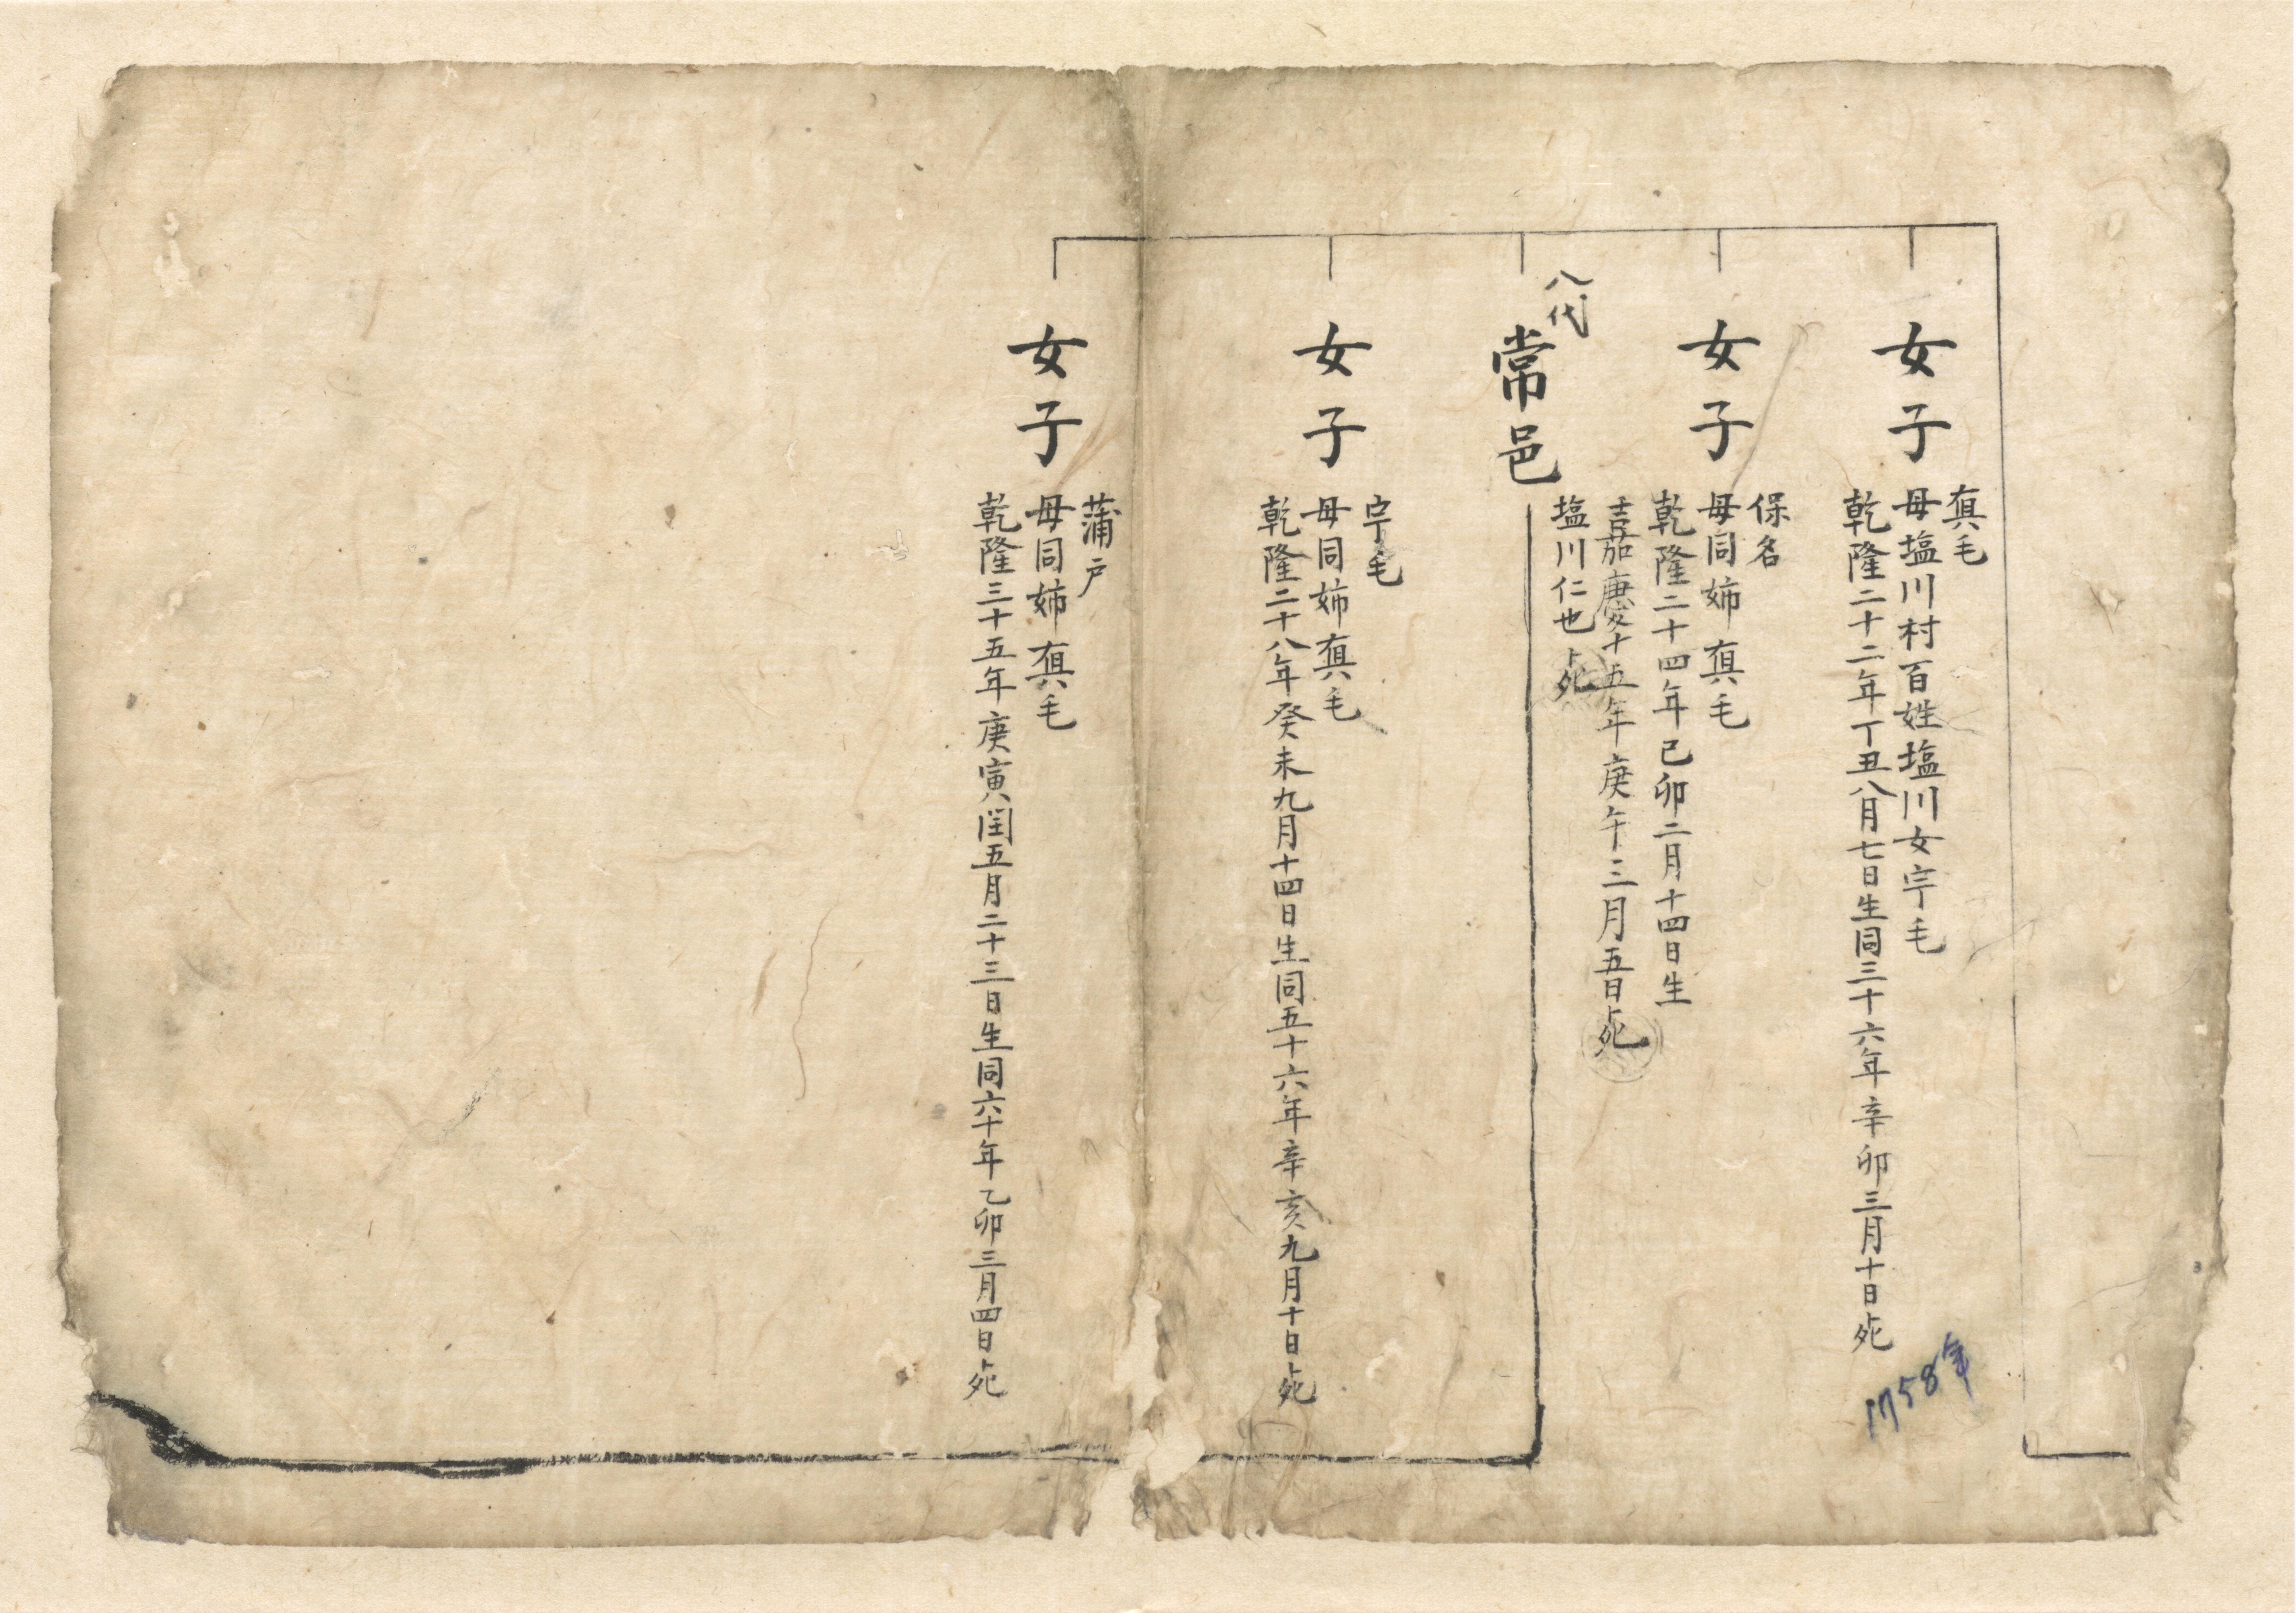 女子
真毛
母塩川村百姓塩川女宇毛
乾隆二十二年丁丑八月七日生同三十六年辛卯三月十日死
1758年
女子
保名
母同姉真毛
乾隆二十四年己卯二月十四日生
嘉慶十五年庚午三月五日死
八代
常邑
塩川仁也死
女子
宇毛
母同姉真毛
乾隆二十八年癸未九月十四日生同五十六年辛亥九月十日死
女子
蒲戸
母同姉真毛
乾隆三十五年庚寅閏五月二十三日生同六十年乙卯三月四日死